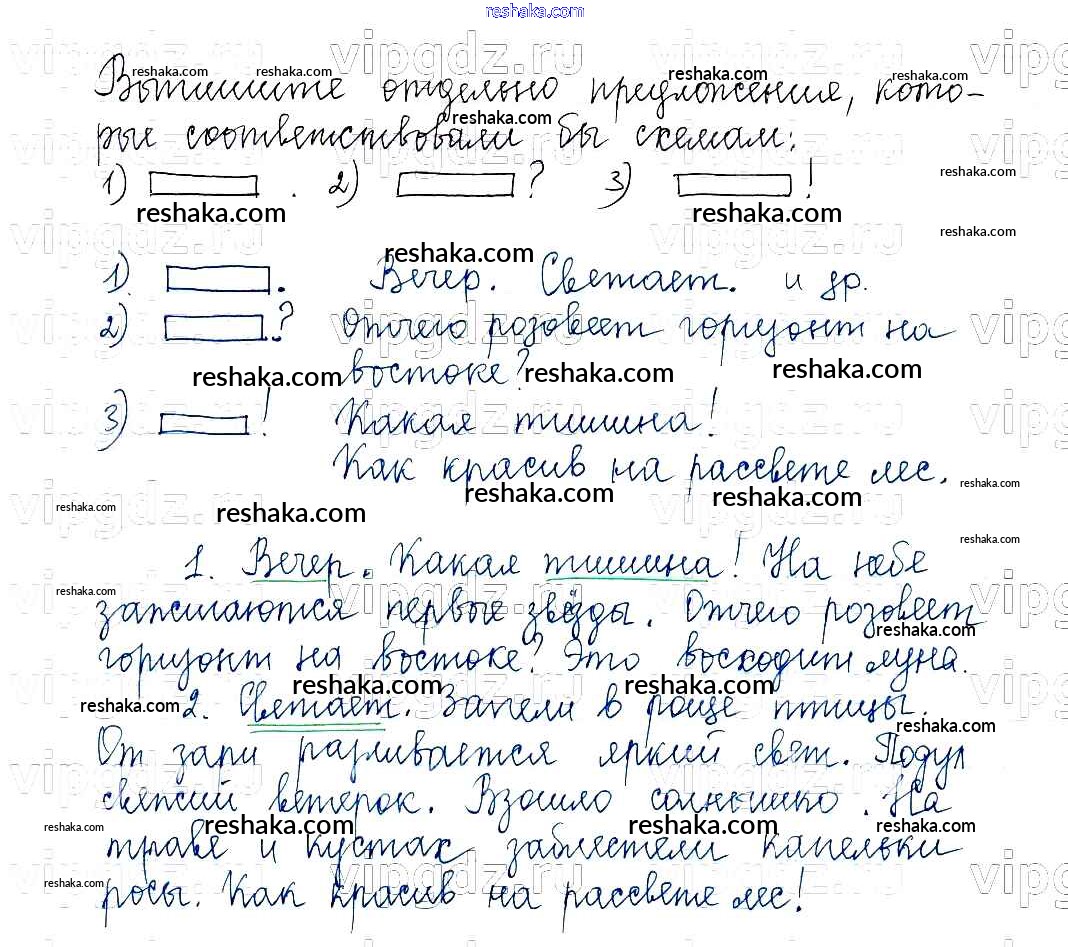 reshaka.com
Выпишите отдельно предложения, кото-
рые соответствовали бы схемам:
1) . 2) ? 3) !
1) . Вечер. Светает. и др.
2) .? Отчего розовеет горизонт на
востоке?
3) ! Какая тишина!
Как красив на рассвете лес.
1. Вечер. Какая тишина! На небе
зажигаются первые звёзды. Отчего розовеет
горизонт на востоке? Это восходит луна.
2. Светает. Запели в роще птицы.
От зари разливается яркий свет. Подул
свежий ветерок. Взошло солнышко. На
траве и кустах заблестели капельки
росы. Как красив на рассвете лес!